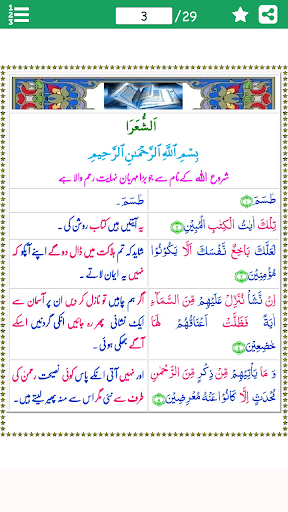 1
2
3
3 /29
اَلشُّعَرَا
بِسْمِ اللّٰهِ الرَّحْمٰنِ الرَّحِيْمِ
شروع اللہ کے نام سے جو بڑا مہربان نہایت رحم والا ہے
طٰسٓمّٓ
طٰسٓمّٓ۔
تِلْكَ اٰيٰتُ الْكِتٰبِ الْمُبِيْنِ
یہ آیتیں ہیں کتاب روشن کی۔
لَعَلَّكَ بَاخِعٌ نَّفْسَكَ اَلَّا يَكُوْنُوْا
مُؤْمِنِيْنَ
شاید کہ تم ہلاکت میں ڈال دو گے اپنے آپکو کہ
نہیں یہ ایمان لاتے۔
اِنْ نَّشَاْ نُنَزِّلْ عَلَيْهِمْ مِّنَ السَّمَآءِ
اٰيَةً فَظَلَّتْ اَعْنَاقُهُمْ لَهَا
خٰضِعِيْنَ
اگر ہم چاہیں تو نازل کر دیں ان پر آسمان سے
ایک نشانی پھر رہ جائیں انکی گردنیں اسکے
آگے جھکی ہوئی۔
وَ مَا يَاْتِيْهِمْ مِّنْ ذِكْرٍ مِّنَ الرَّحْمٰنِ
مُحْدَثٍ اِلَّا كَانُوْا عَنْهُ مُعْرِضِيْنَ
اور نہیں آتی انکے پاس کوئی نصیحت رحمٰن کی
طرف سے نئی مگر اس سے منہ پھیر لیتے ہیں۔